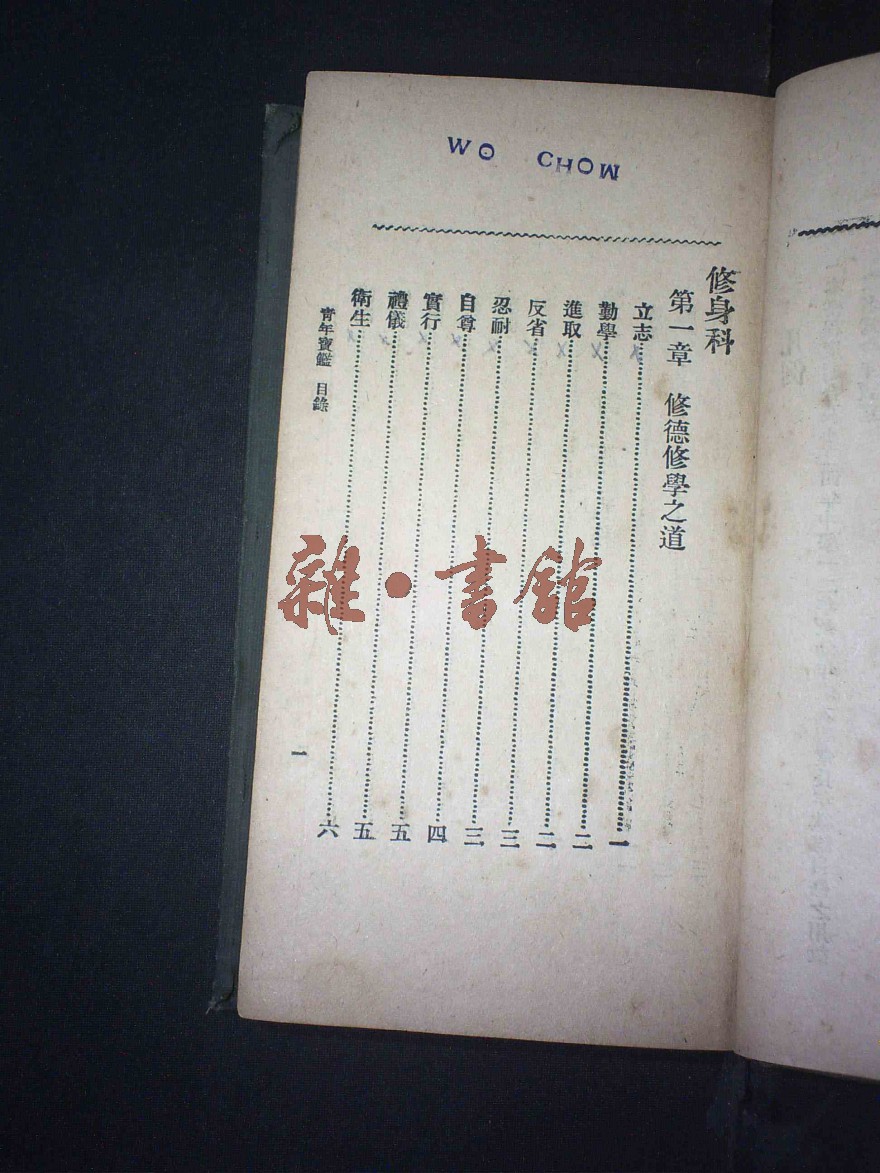 WO CHOW
修身科
第一章 修德修學之道
立志………一
勤學………二
進取………二
反省………三
忍耐………三
自尊………四
實行………五
禮儀………五
衛生………六
青年寶鑑 目錄
一
雜·書館